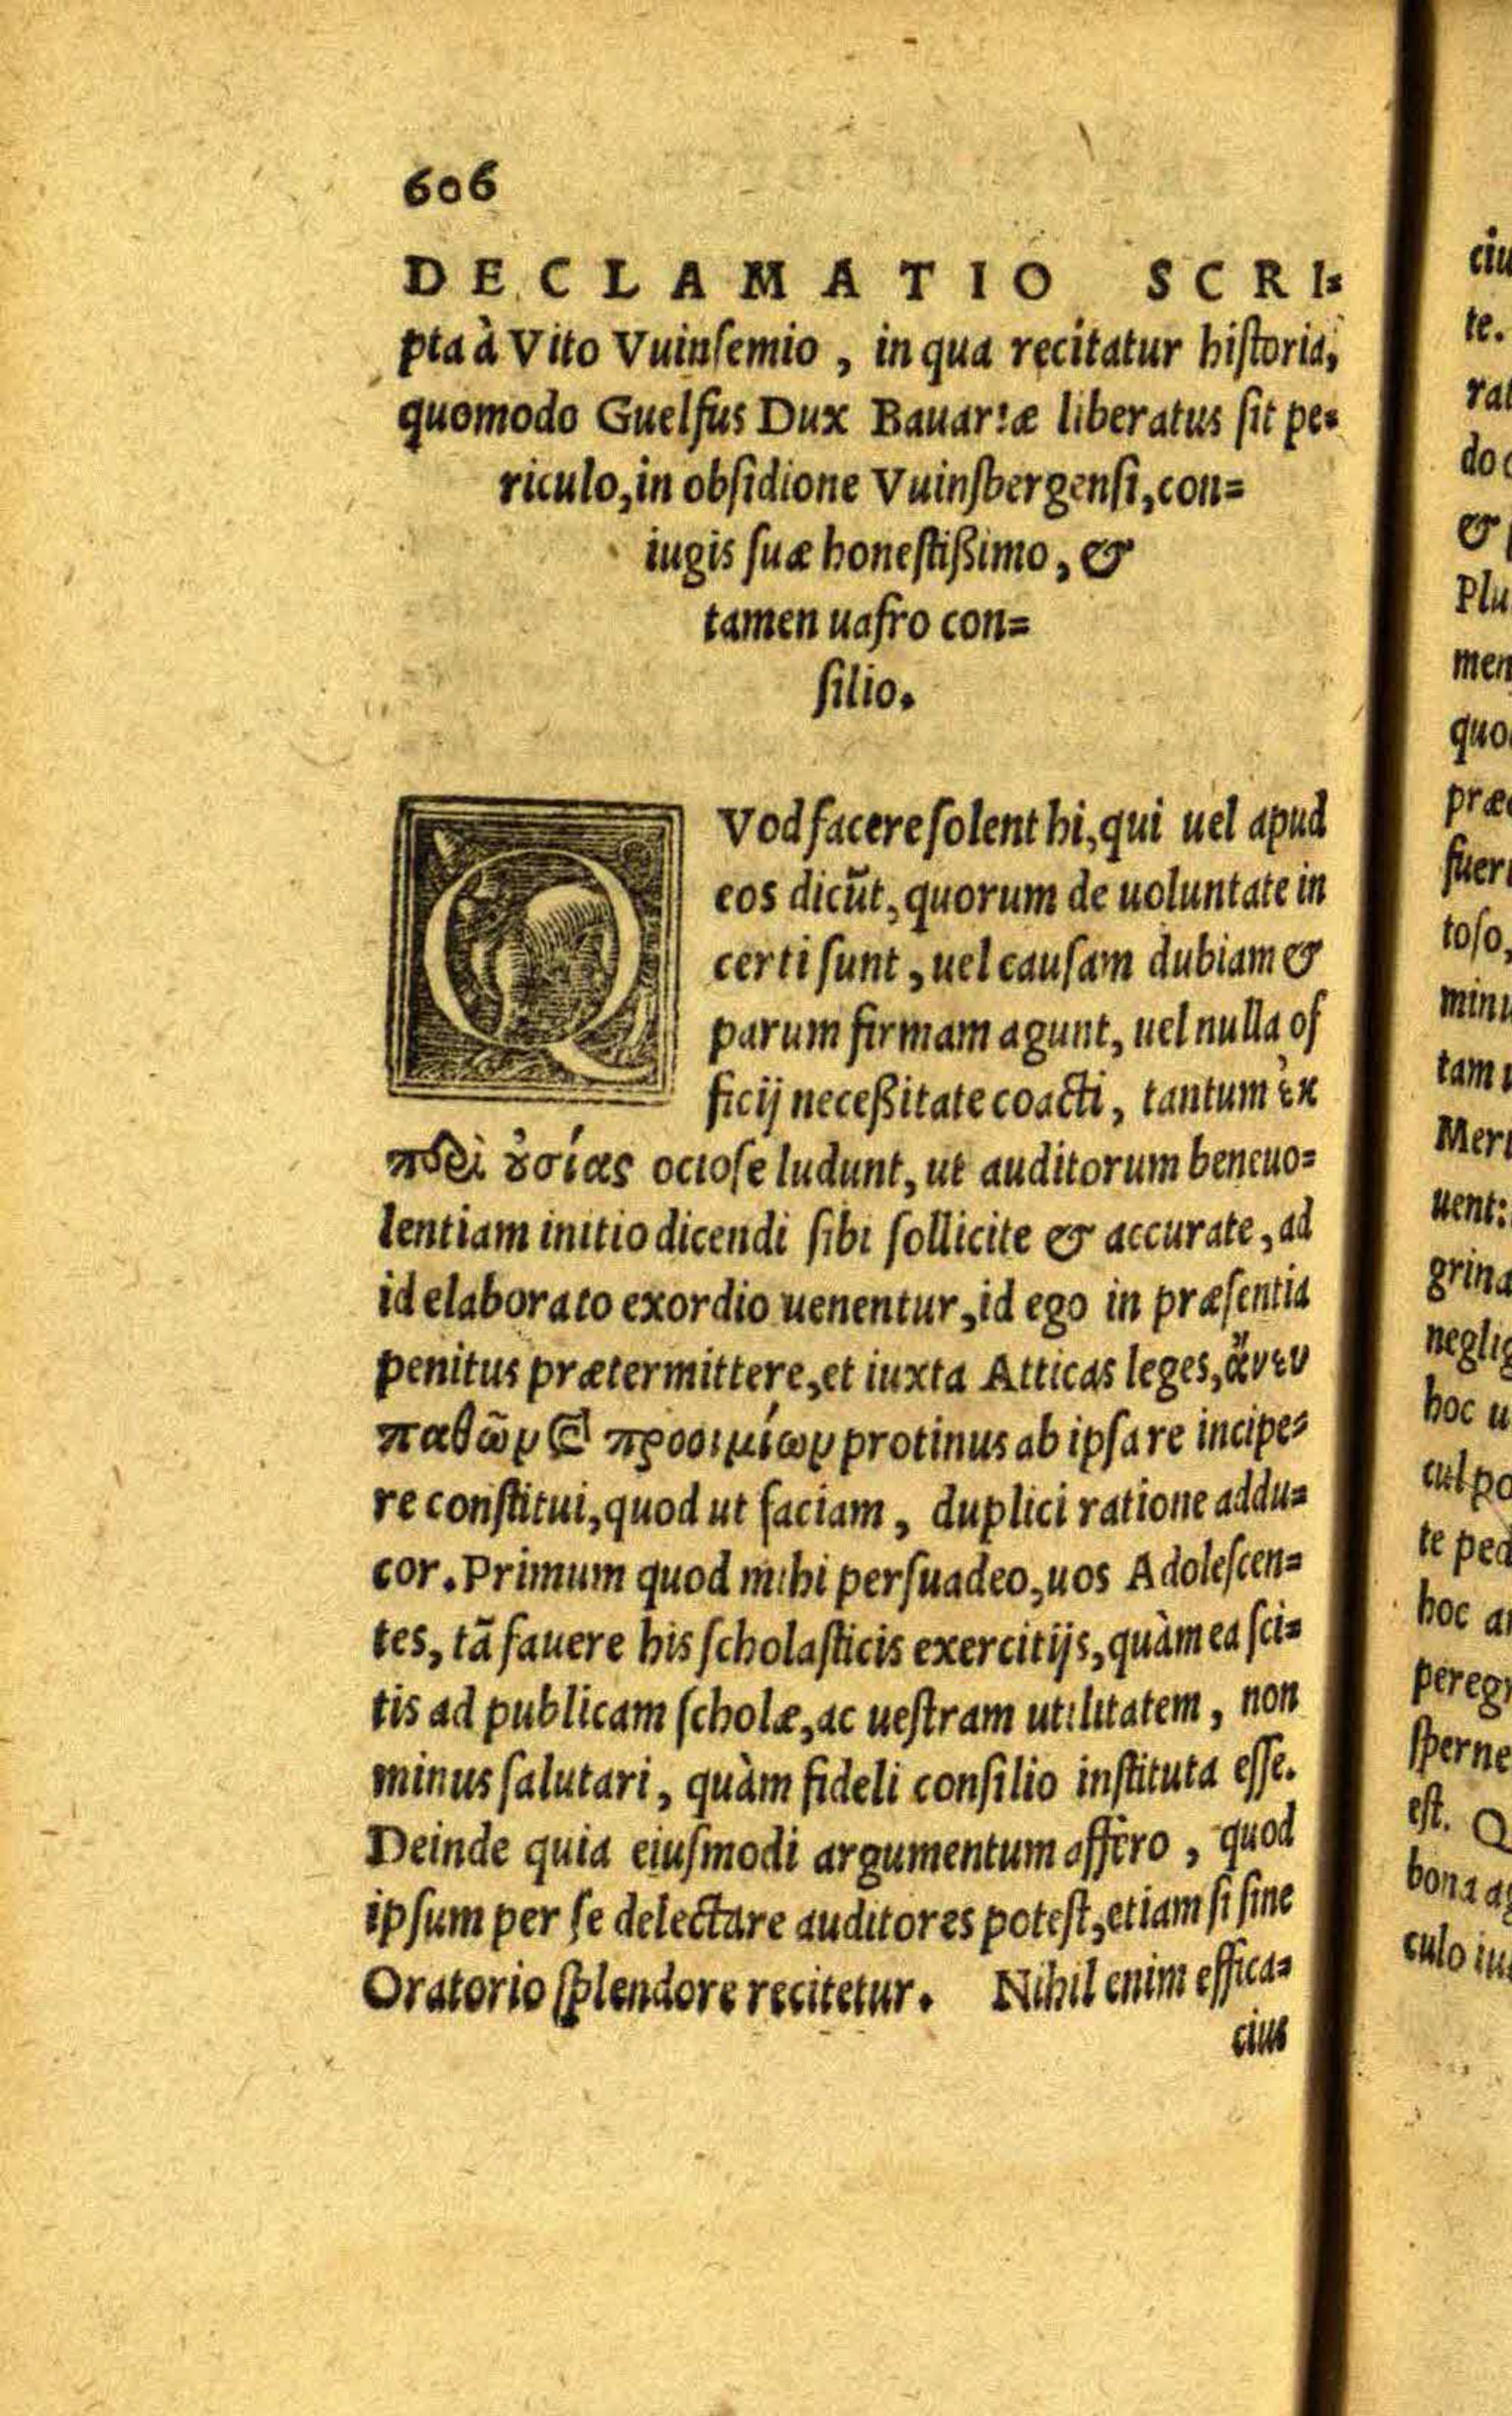 606
DECLAMATIO SCRI-
pta à Vito Vuinsemio, in qua recitatur historia,
quomodo Guelfus Dux Bauariæ liberatus sit pe-
riculo, in obsidione Vuinsbergensi, con-
iugis suæ honestißimo, &
tamen uafro con-
silio.
QVod facere solent hi, qui uel apud
eos dicūt, quorum de uoluntate in
certi sunt, uel causam dubiam &
parum firmam agunt, uel nulla of
ficij neceßitate coacti, tantum ἐκ
περι ȣσίας ociose ludunt, ut auditorum beneuo-
lentiam initio dicendi sibi sollicite & accurate, ad
id elaborato exordio uenentur, id ego in præsentia
penitus prætermittere, et iuxta Atticas leges, ἄνευ
παθῶν καὶ προοιμίων protinus ab ipsa re incipe-
re constitui, quod ut faciam, duplici ratione addu-
cor. Primum quod mihi persuadeo, uos Adolescen-
tes, tā fauere his scholasticis exercitijs, quàm ea sci-
tis ad publicam scholæ, ac uestram utilitatem, non
minus salutari, quàm fideli consilio instituta esse.
Deinde quia eiusmodi argumentum affero, quod
ipsum per se delectare auditores potest, etiam si sine
Oratorio splendore recitetur. Nihil enim effica-
cius